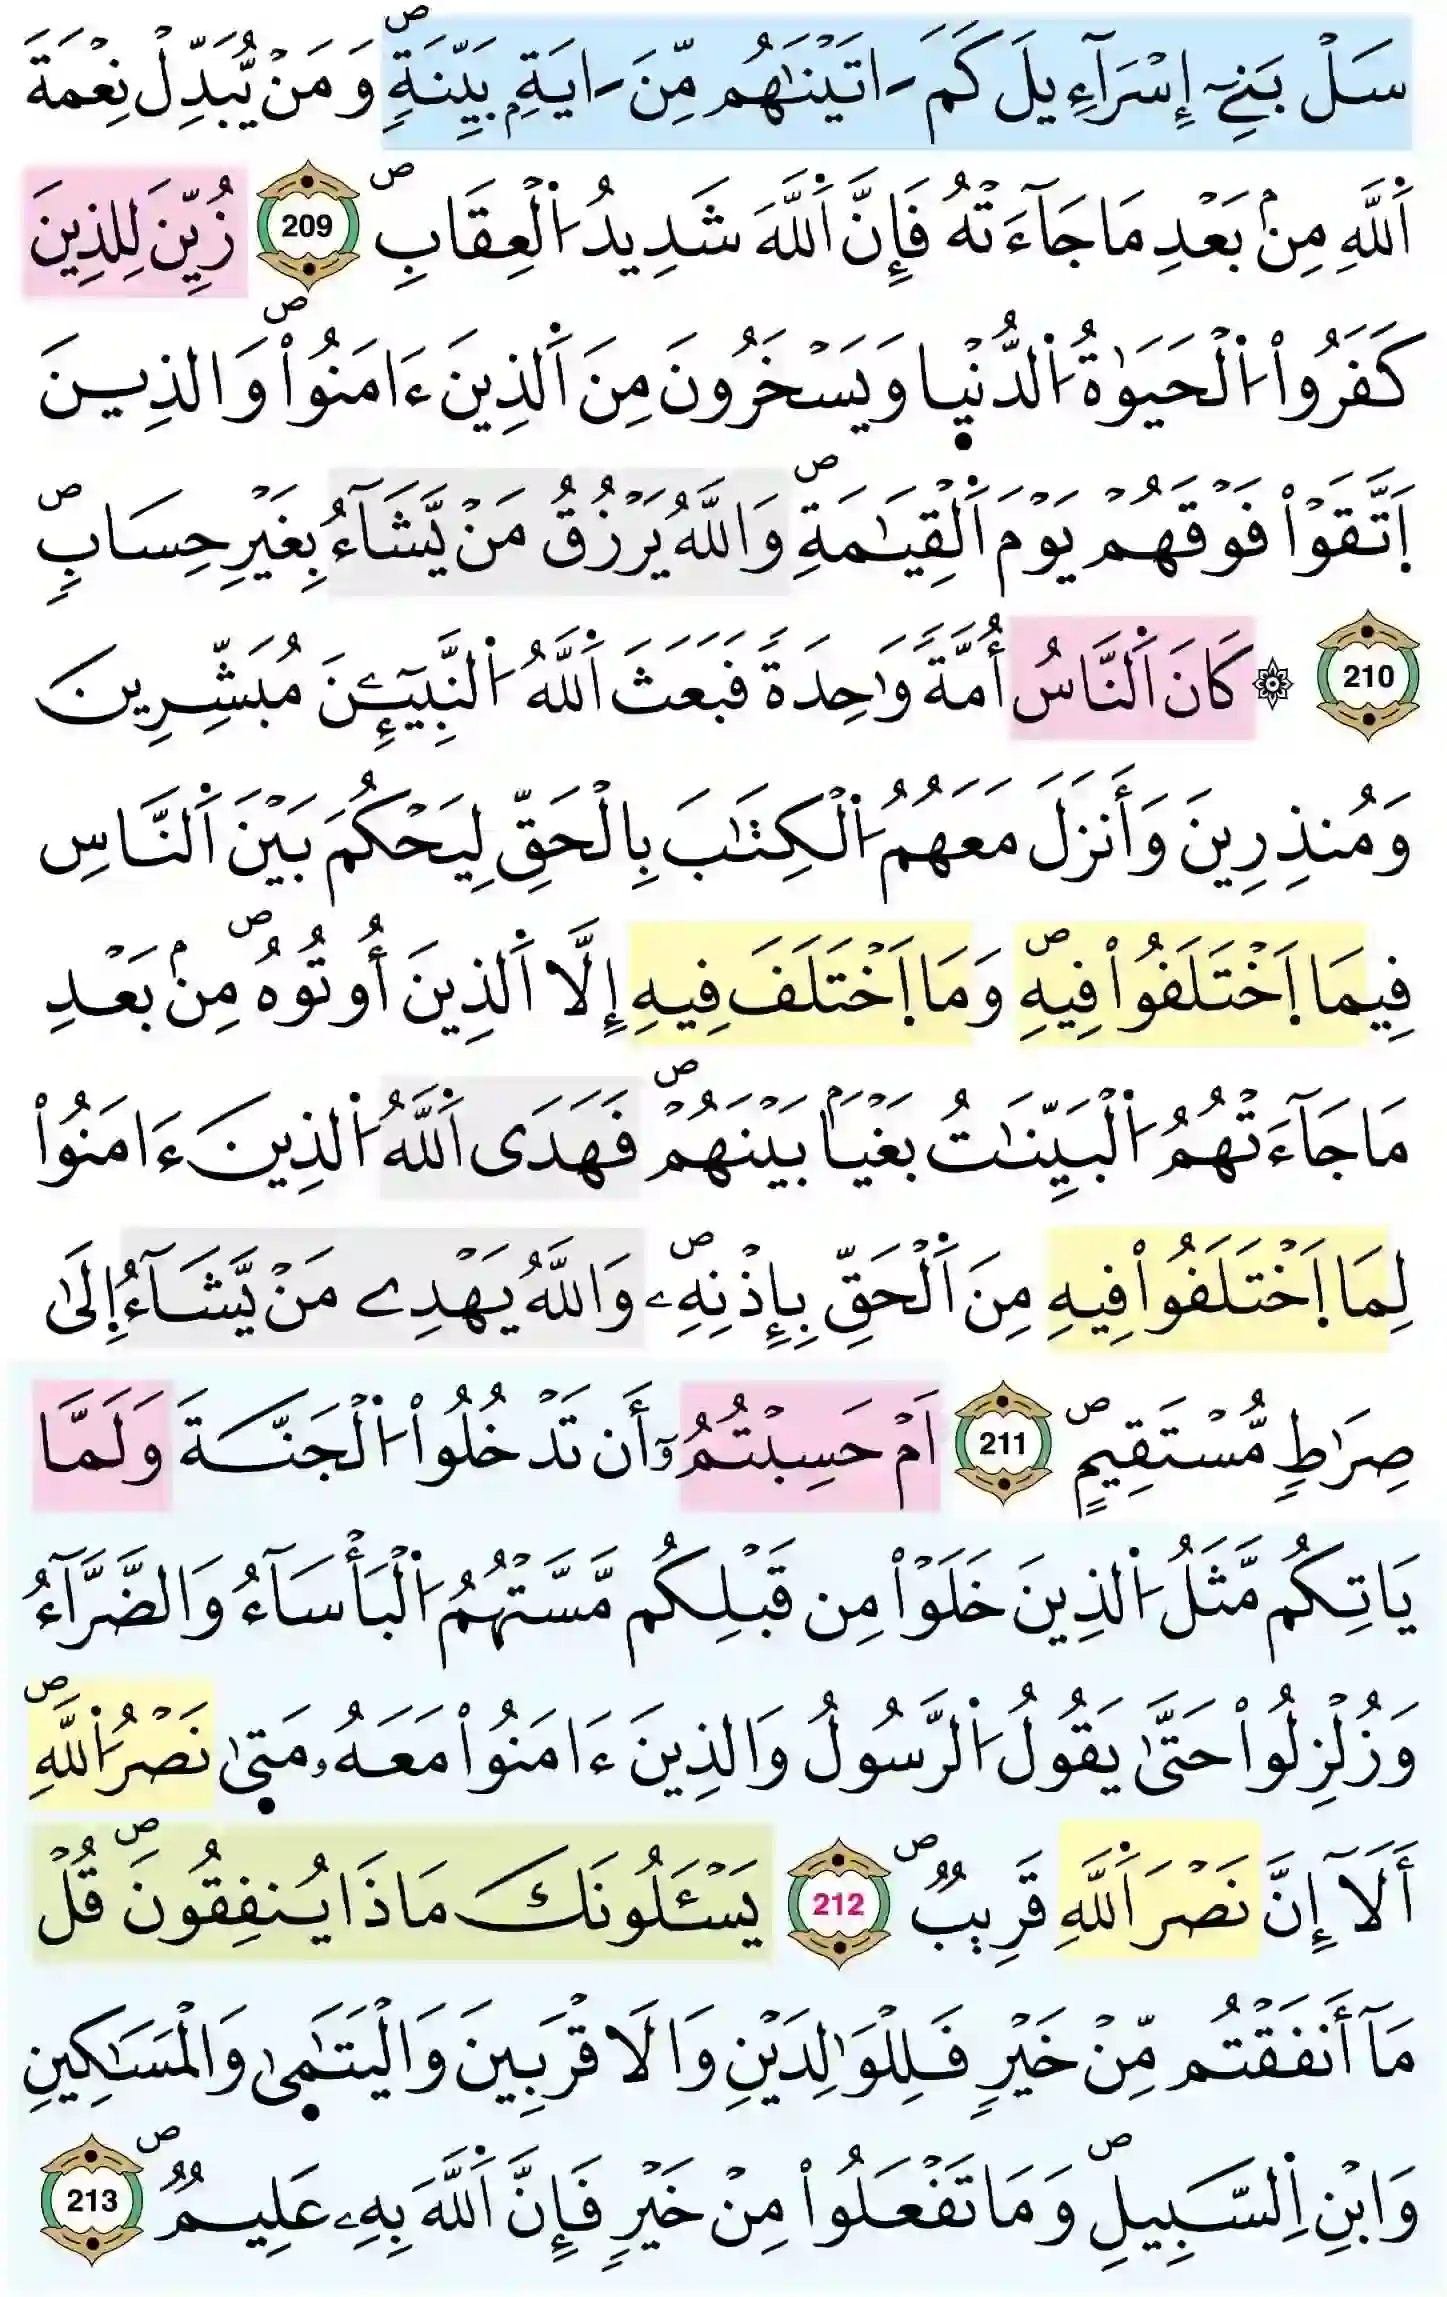 سَلْ بَنِےٓ إِسْرَآءِيلَ كَمَ اٰتَيْنَٰهُم مِّنَ اٰيَةِۢ بَيِّنَةٍۖ وَمَنْ يُّبَدِّلْ نِعْمَةَ
اَ۬للَّهِ مِنۢ بَعْدِ مَا جَآءَتْهُ فَإِنَّ اَ۬للَّهَ شَدِيدُ اُ۬لْعِقَابِۖ 209 زُيِّنَ لِلذِينَ
كَفَرُواْ اُ۬لْحَيَوٰةُ اُ۬لدُّنْيٜا وَيَسْخَرُونَ مِنَ اَ۬لذِينَ ءَامَنُواْۖ وَالذِينَ
اَ۪تَّقَوْاْ فَوْقَهُمْ يَوْمَ اَ۬لْقِيَٰمَةِۖ وَاللَّهُ يَرْزُقُ مَنْ يَّشَآءُ بِغَيْرِ حِسَابٍۖ
210 ۞ كَانَ اَ۬لنَّاسُ أُمَّةً وَٰحِدَةً فَبَعَثَ اَ۬للَّهُ اُ۬لنَّبِيٓـِٕۧنَ مُبَشِّرِينَ
وَمُنذِرِينَ وَأَنزَلَ مَعَهُمُ اُ۬لْكِتَٰبَ بِالْحَقِّ لِيَحْكُمَ بَيْنَ اَ۬لنَّاسِ
فِيمَا اَ۪خْتَلَفُواْ فِيهِۖ وَمَا اَ۪خْتَلَفَ فِيهِ إِلَّا اَ۬لذِينَ أُوتُوهُۖ مِنۢ بَعْدِ
مَا جَآءَتْهُمُ اُ۬لْبَيِّنَٰتُ بَغْيَاۢ بَيْنَهُمْۖ فَهَدَى اَ۬للَّهُ اُ۬لذِينَ ءَامَنُواْ
لِمَا اَ۪خْتَلَفُواْ فِيهِ مِنَ اَ۬لْحَقِّ بِإِذْنِهِۦۖ وَاللَّهُ يَهْدِے مَنْ يَّشَآءُ إِلَىٰ
صِرَٰطٍ مُّسْتَقِيمٍۖ 211 اَمْ حَسِبْتُمُۥٓ أَن تَدْخُلُواْ اُ۬لْجَنَّةَ وَلَمَّا
يَاتِكُم مَّثَلُ اُ۬لذِينَ خَلَوْاْ مِن قَبْلِكُم مَّسَّتْهُمُ اُ۬لْبَأْسَآءُ وَالضَّرَّآءُ
وَزُلْزِلُواْ حَتَّىٰ يَقُولُ اُ۬لرَّسُولُ وَالذِينَ ءَامَنُواْ مَعَهُۥ مَتٜىٰ نَصْرُ اُ۬للَّهِۖ
أَلَآ إِنَّ نَصْرَ اَ۬للَّهِ قَرِيبٌۖ 212 يَسْـَٔلُونَكَ مَاذَا يُنفِقُونَۖ قُلْ
مَآ أَنفَقْتُم مِّنْ خَيْرٍ فَلِلْوَٰلِدَيْنِ وَالَاقْرَبِينَ وَالْيَتَٰمٜىٰ وَالْمَسَٰكِينِ
وَابْنِ اِ۬لسَّبِيلِۖ وَمَا تَفْعَلُواْ مِنْ خَيْرٍ فَإِنَّ اَ۬للَّهَ بِهِۦ عَلِيمٌۖ 213